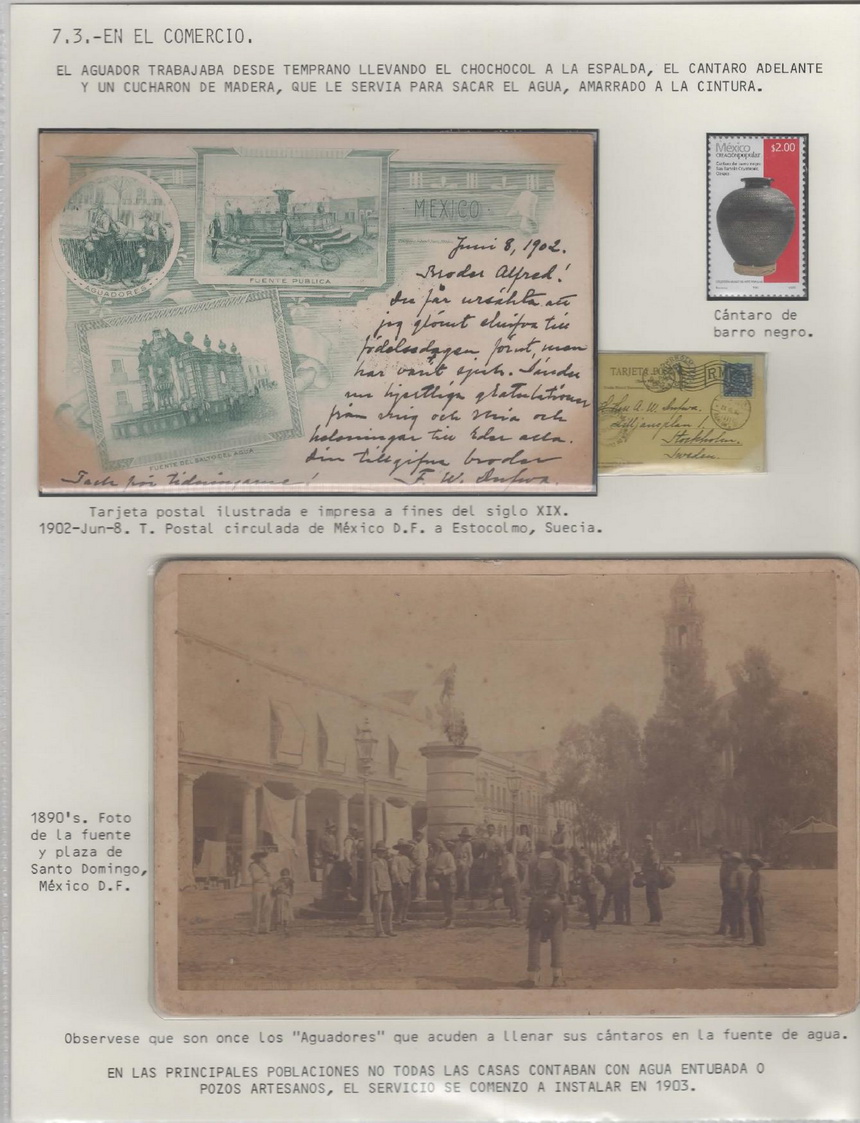 7.3.-EN EL COMERCIO.
EL AGUADOR TRABAJABA DESDE TEMPRANO LLEVANDO EL CHOCHOCOL A LA ESPALDA, EL CANTARO ADELANTE
Y UN CUCHARON DE MADERA, QUE LE SERVIA PARA SACAR EL AGUA, AMARRADO A LA CINTURA.
MEXICO
AGUADORES
FUENTE PUBLICA
FUENTE DEL SALTO DEL AGUA
Juni 8, 1902.
Broder Alfred!
Du får ursäkta att
jag glömt skrifva till
födelsedagen förut, men
har varit sjuk. Sänder
nu hjertliga gratulationer
från mig och Mia och
helsningar till Eder alla.
Din tillgifne broder
F. W.
Tack för tidningarne!
México
creaciónpopular
$2.00
Cántaro de
barro negro.
TARJETA
A. W.
Lilljansplan 1
Stockholm.
Sweden.
Tarjeta postal ilustrada e impresa a fines del siglo XIX.
1902-Jun-8. T. Postal circulada de México D.F. a Estocolmo, Suecia.
1890's. Foto
de la fuente
y plaza de
Santo Domingo,
México D.F.
Observese que son once los "Aguadores" que acuden a llenar sus cántaros en la fuente de agua.
EN LAS PRINCIPALES POBLACIONES NO TODAS LAS CASAS CONTABAN CON AGUA ENTUBADA O
POZOS ARTESANOS, EL SERVICIO SE COMENZO A INSTALAR EN 1903.